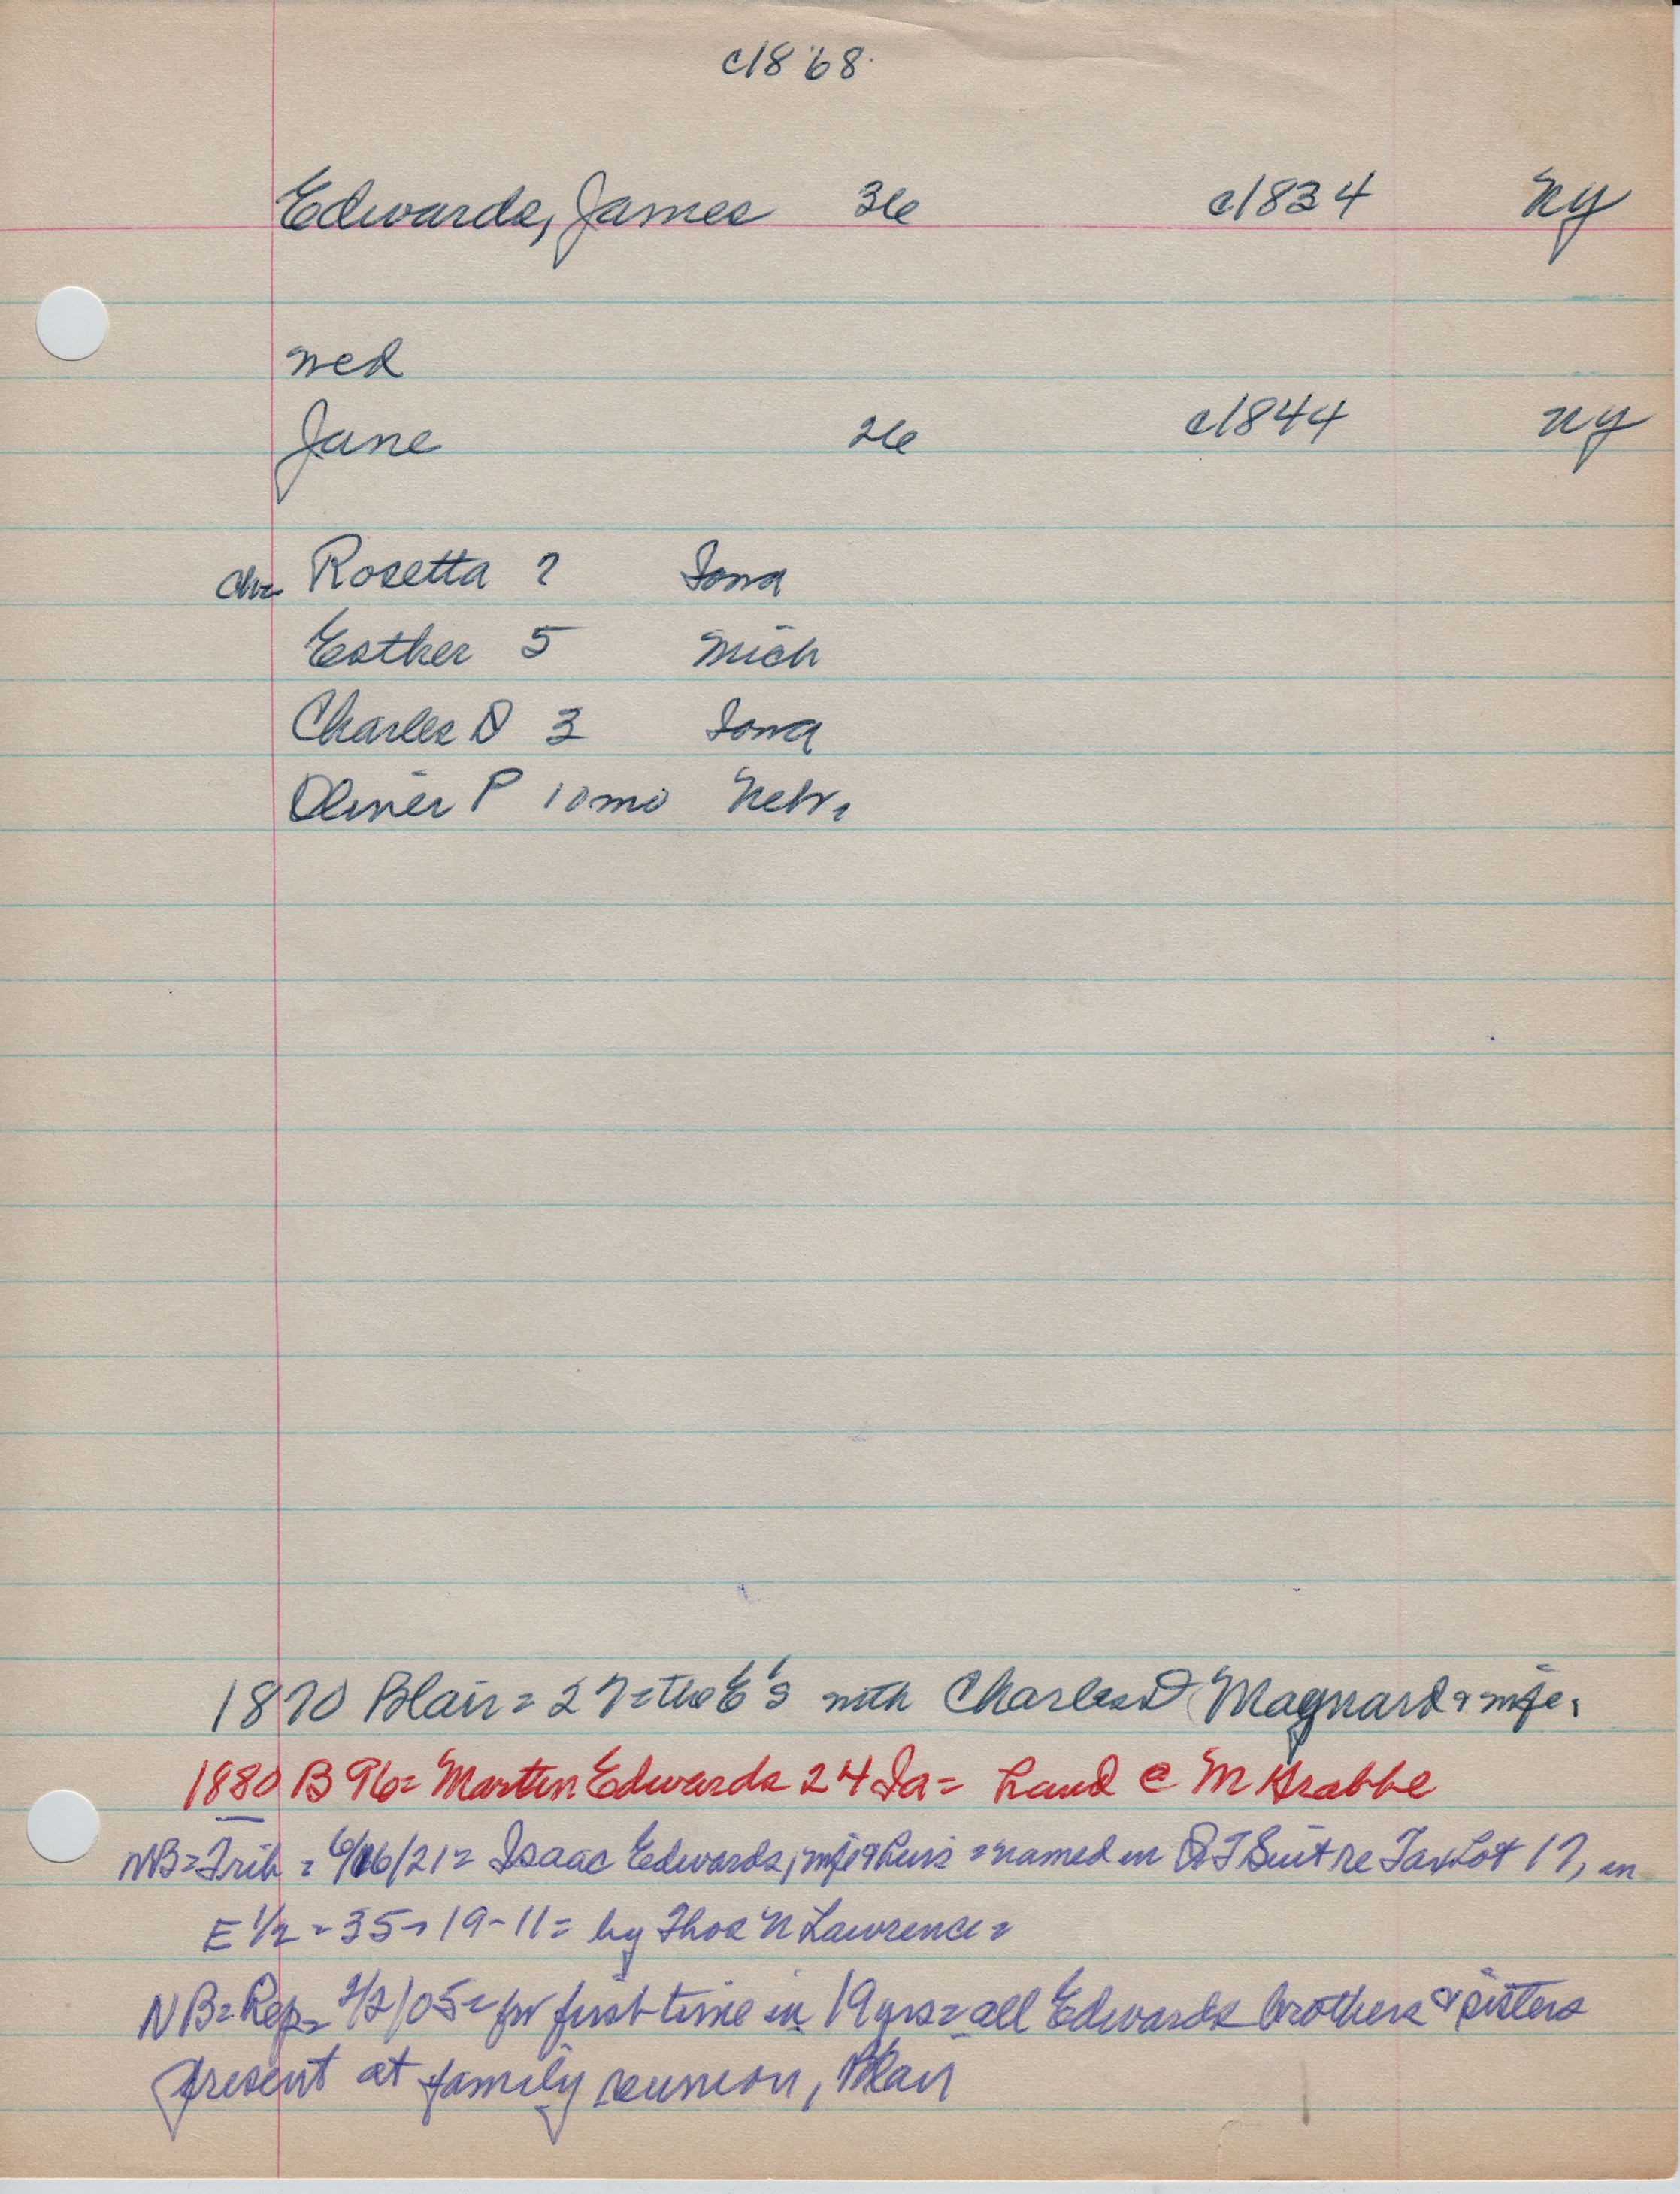 c1868
Edwards, James 36 c1834 NY
wed
Jane 26 c1844 NY
ch= Rosetta 7 Iowa
Esther 5 Mich
Charles D 3 Iowa
Oliver P 10mo Nebr.
1870 Blair = 27 = the E's with Charles D Maynard & wife.
1880 B 96 = Martin Edwards 24 Ia = hand @ M Grabbe
NB = Trib = 6/16/21 = Isaac Edwards, wife & heirs = named in QT Suit re Tax Lot 17, in
E 1/2 - 35 - 19 - 11 = by Thos N Lawrence =
NB = Rep = 2/05 = for first time in 19 yrs = all Edwards brothers & sisters
present at family reunion, Blair